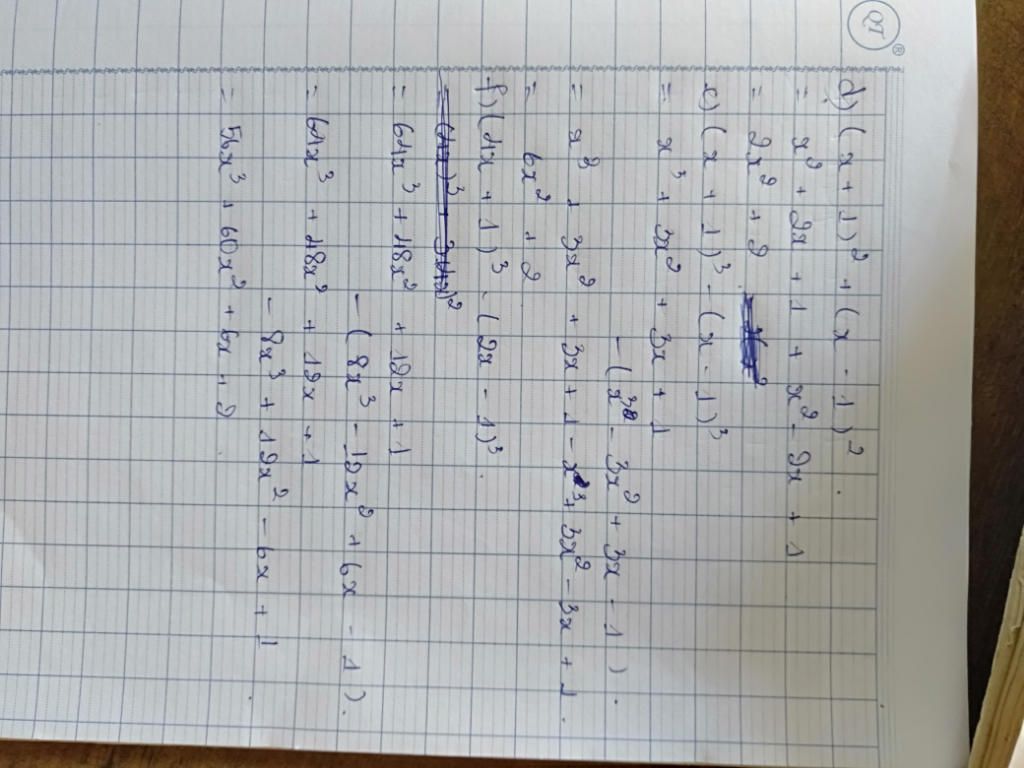 QT ®
d) (x + 1)² + (x - 1)².
= x² + 2x + 1 + x² - 2x + 1
= 2x² + 2
e) (x + 1)³ - (x - 1)³
= x³ + 3x² + 3x + 1
- (x³ - 3x² + 3x - 1).
= x³ + 3x² + 3x + 1 - x³ + 3x² - 3x + 1.
= 6x² + 2
f) (4x + 1)³ - (2x - 1)³.
= 64x³ + 48x² + 12x + 1
- (8x³ - 12x² + 6x - 1).
= 64x³ + 48x² + 12x + 1
- 8x³ + 12x² - 6x + 1
= 56x³ + 60x² + 6x + 2